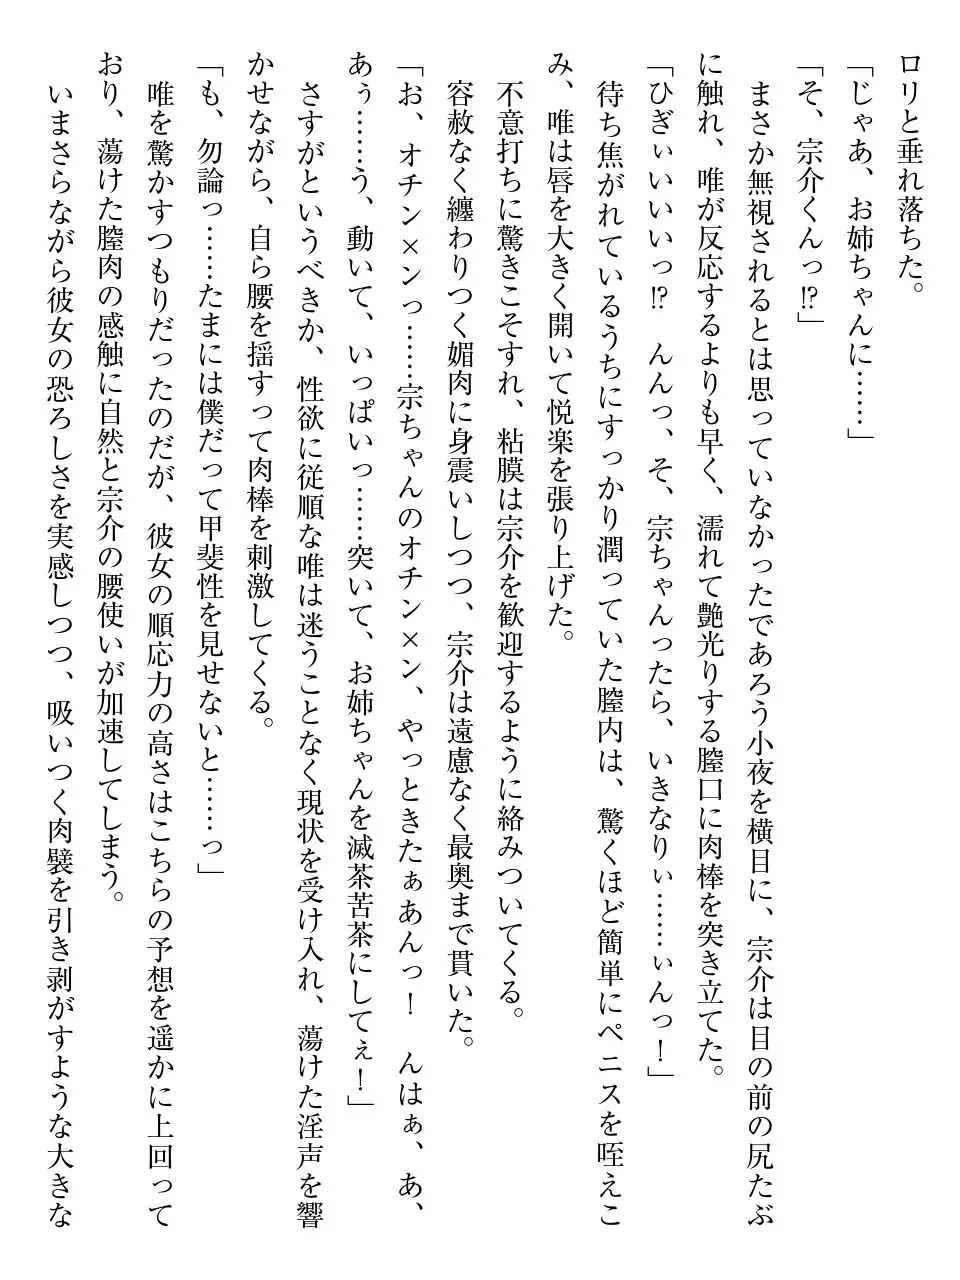 ロリと垂れ落ちた。
「じゃあ、お姉ちゃんに……」
「そ、宗介くんっ!?」
　まさか無視されるとは思っていなかったであろう小夜を横目に、宗介は目の前の尻たぶ
に触れ、唯が反応するよりも早く、濡れて艶光りする膣口に肉棒を突き立てた。
「ひぎぃいいいっ!?　んんっ、そ、宗ちゃんったら、いきなりぃ……ぃんっ！」
　待ち焦がれているうちにすっかり潤っていた膣内は、驚くほど簡単にペニスを咥えこ
み、唯は唇を大きく開いて悦楽を張り上げた。
　不意打ちに驚きこそすれ、粘膜は宗介を歓迎するように絡みついてくる。
　容赦なく纏わりつく媚肉に身震いしつつ、宗介は遠慮なく最奥まで貫いた。
「お、オチン×ンっ……宗ちゃんのオチン×ン、やっときたぁあんっ！　んはぁ、あ、
あぅ……う、動いて、いっぱいっ……突いて、お姉ちゃんを滅茶苦茶にしてぇ！」
　さすがというべきか、性欲に従順な唯は迷うことなく現状を受け入れ、蕩けた淫声を響
かせながら、自ら腰を揺すって肉棒を刺激してくる。
「も、勿論っ……たまには僕だって甲斐性を見せないと……っ」
　唯を驚かすつもりだったのだが、彼女の順応力の高さはこちらの予想を遥かに上回って
おり、蕩けた膣肉の感触に自然と宗介の腰使いが加速してしまう。
　いまさらながら彼女の恐ろしさを実感しつつ、吸いつく肉襞を引き剥がすような大きな